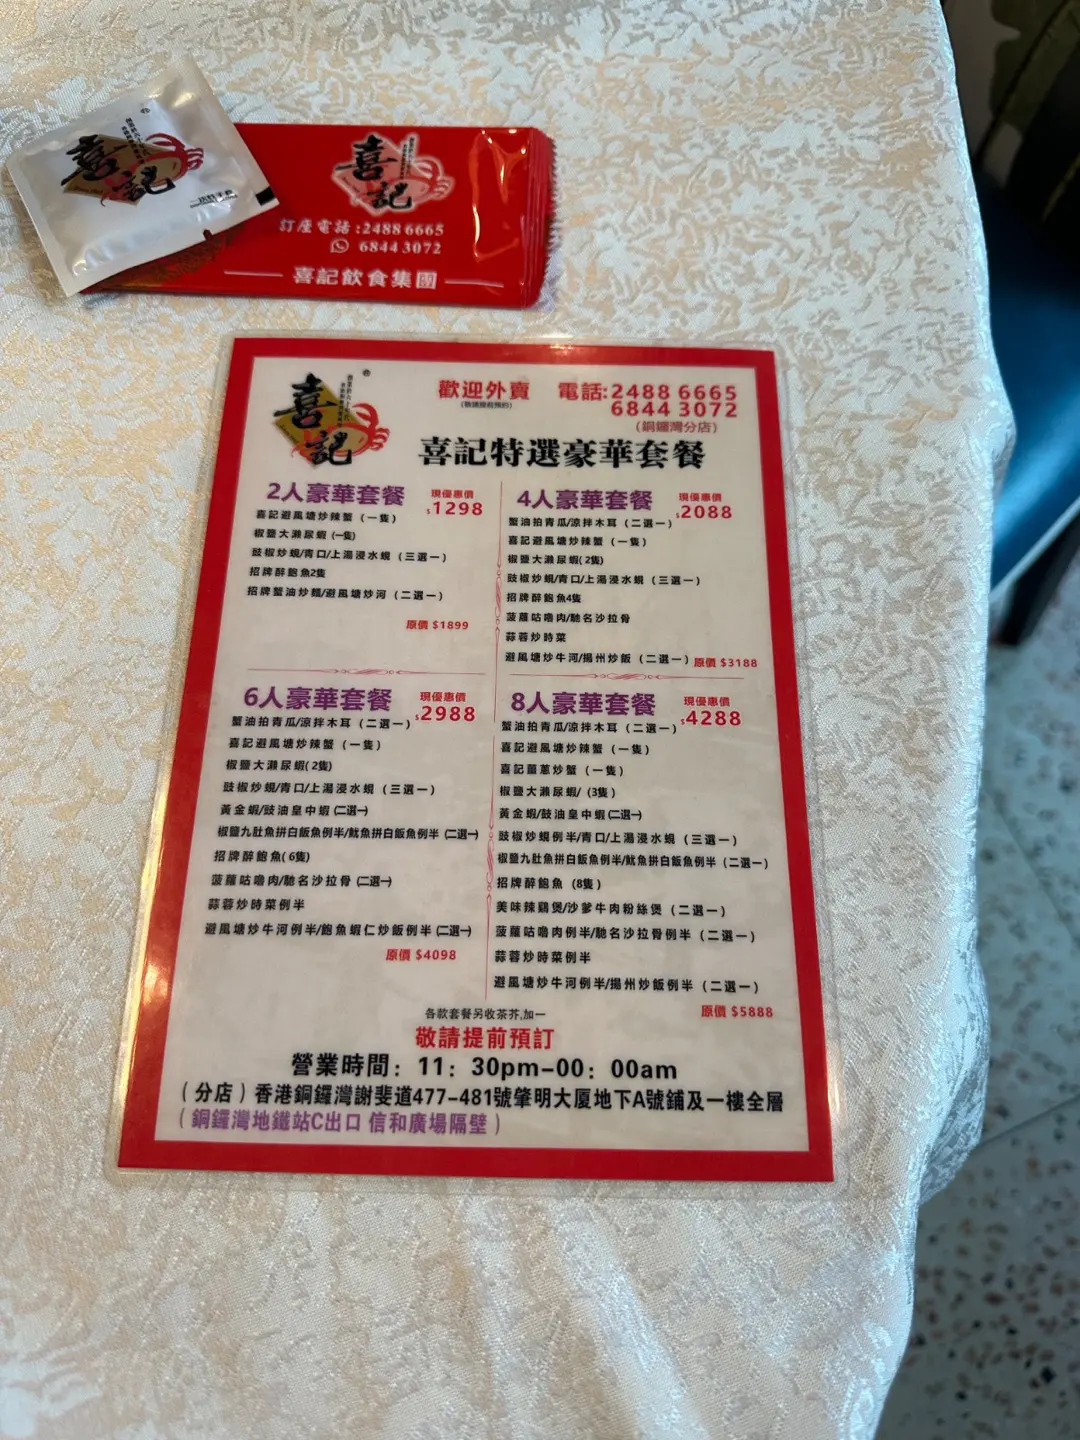 喜記
訂座電話:2488 6665
6844 3072
喜記飲食集團
喜記
歡迎外賣
電話:2488 6665
6844 3072
(銅鑼灣分店)
喜記
喜記特選豪華套餐
2人豪華套餐
現優惠價
$1298
喜記避風塘炒辣蟹（一隻）
椒鹽大瀨尿蝦 (一隻)
豉椒炒蜆/青口/上湯浸水蜆（三選一）
招牌醉鮑魚2隻
招牌蟹油炒麵/避風塘炒河（二選一）
原價 $1899
4人豪華套餐
現優惠價
$2088
蟹油拍青瓜/涼拌木耳（二選一）
喜記避風塘炒辣蟹（一隻）
椒鹽大瀨尿蝦( 2隻)
豉椒炒蜆/青口/上湯浸水蜆（三選一）
招牌醉鮑魚4隻
菠蘿咕嚕肉/馳名沙拉骨
蒜蓉炒時菜
避風塘炒牛河/揚州炒飯（二選一）
原價 $3188
6人豪華套餐
現優惠價
$2988
蟹油拍青瓜/涼拌木耳（二選一）
喜記避風塘炒辣蟹（一隻）
椒鹽大瀨尿蝦( 2隻)
豉椒炒蜆/青口/上湯浸水蜆（三選一）
黃金蝦/豉油皇中蝦 (二選一)
椒鹽九肚魚拼白飯魚例半/魷魚拼白飯魚例半 (二選一)
招牌醉鮑魚( 6隻)
菠蘿咕嚕肉/馳名沙拉骨 (二選一)
蒜蓉炒時菜例半
避風塘炒牛河例半/鮑魚蝦仁炒飯例半 (二選一)
原價 $4098
8人豪華套餐
現優惠價
$4288
蟹油拍青瓜/涼拌木耳（二選一）
喜記避風塘炒辣蟹（一隻）
喜記薑蔥炒蟹（一隻）
椒鹽大瀨尿蝦/（3隻）
黃金蝦/豉油皇中蝦 (二選一)
豉椒炒蜆例半/青口/上湯浸水蜆（三選一）
椒鹽九肚魚拼白飯魚例半/魷魚拼白飯魚例半（二選一）
招牌醉鮑魚（8隻）
美味辣鷄煲/沙爹牛肉粉絲煲（二選一）
菠蘿咕嚕肉例半/馳名沙拉骨例半（二選一）
蒜蓉炒時菜例半
避風塘炒牛河例半/揚州炒飯例半（二選一）
原價 $5888
各款套餐另收茶芥,加一
敬請提前預訂
營業時間：11：30pm-00：00am
（分店）香港銅鑼灣謝斐道477-481號肇明大厦地下A號鋪及一樓全層
（銅鑼灣地鐵站C出口 信和廣場隔壁）